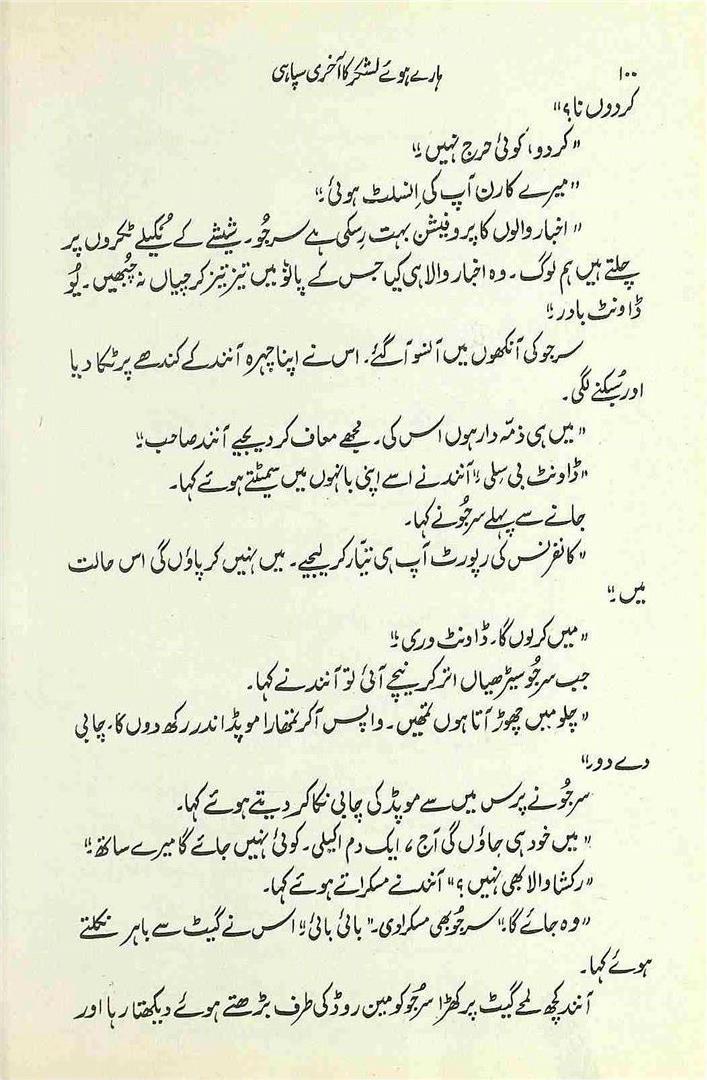 ۱۰۰ ہارے ہوئے لشکر کا آخری سپاہی
کردوں نا؟"
"کردو، کوئی حرج نہیں۔"
"میرے کارن آپ کی اِنسلٹ ہوئی۔"
"اخبار والوں کا پروفیشن بہت رِسکی ہے سرجُو۔ شیشے کے نُکیلے ٹکروں پر
چلتے ہیں ہم لوگ۔ وہ اخبار والا ہی کیا جس کے پانوٗ میں تیز تیز کرچیاں نہ چُبھیں۔ یُو
ڈاونٹ بادر۔"
سرجو کی آنکھوں میں آنسو آگئے۔ اس نے اپنا چہرہ آنند کے کندھے پر ٹکا دیا
اور سُبکنے لگی۔
"میں ہی ذمّہ دار ہوں اس کی۔ مجھے معاف کر دیجیے آنند صاحب۔"
"ڈاونٹ بی سِلی۔" آنند نے اسے اپنی بانہوں میں سمیٹتے ہوئے کہا۔
جانے سے پہلے سرجُو نے کہا۔
"کانفرنس کی رپورٹ آپ ہی تیّار کر لیجیے۔ میں نہیں کر پاؤں گی اس حالت
میں۔"
"میں کرلوں گا۔ ڈاونٹ وری۔"
جب سرجُو سیڑھیاں اتر کر نیچے آئی تو آنند نے کہا۔
"چلو میں چھوڑ آتا ہوں تمھیں۔ واپس آکر تمھارا موپڈ اندر رکھ دوں گا۔ چابی
دے دو۔"
سرجُو نے پرس میں سے موپڈ کی چابی نکال کر دیتے ہوئے کہا۔
"میں خود ہی جاؤں گی آج، ایک دم اکیلی۔ کوئی نہیں جائے گا میرے ساتھ۔"
"رکشا والا بھی نہیں؟" آنند نے مسکراتے ہوئے کہا۔
"وہ جائے گا۔" سرجُو بھی مسکرا دی۔ "بائی بائی۔" اس نے گیٹ سے باہر نکلتے
ہوئے کہا۔
آنند کچھ لمحے گیٹ پر کھڑا سرجُو کو مین روڈ کی طرف بڑھتے ہوئے دیکھتا رہا اور